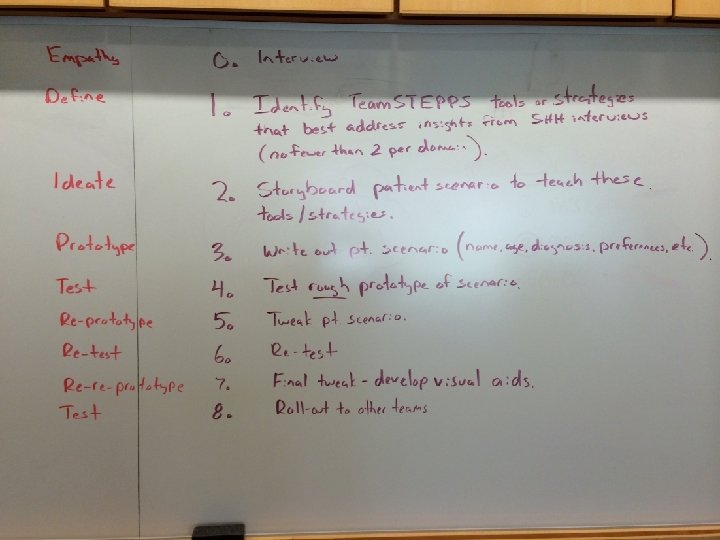 Empathy 0. Interview
Define 1. Identify TeamSTEPPS tools or strategies
that best address insights from SHH interviews
(no fewer than 2 per domain).
Ideate 2. Storyboard patient scenario to teach these
tools/strategies.
Prototype 3. Write out pt. scenario (name, age, diagnosis, preferences, etc.).
Test 4. Test rough prototype of scenario.
Re-prototype 5. Tweak pt. scenario.
Re-test 6. Re-test
Re-re-prototype 7. Final tweak - develop visual aids.
Test 8. Roll-out to other teams